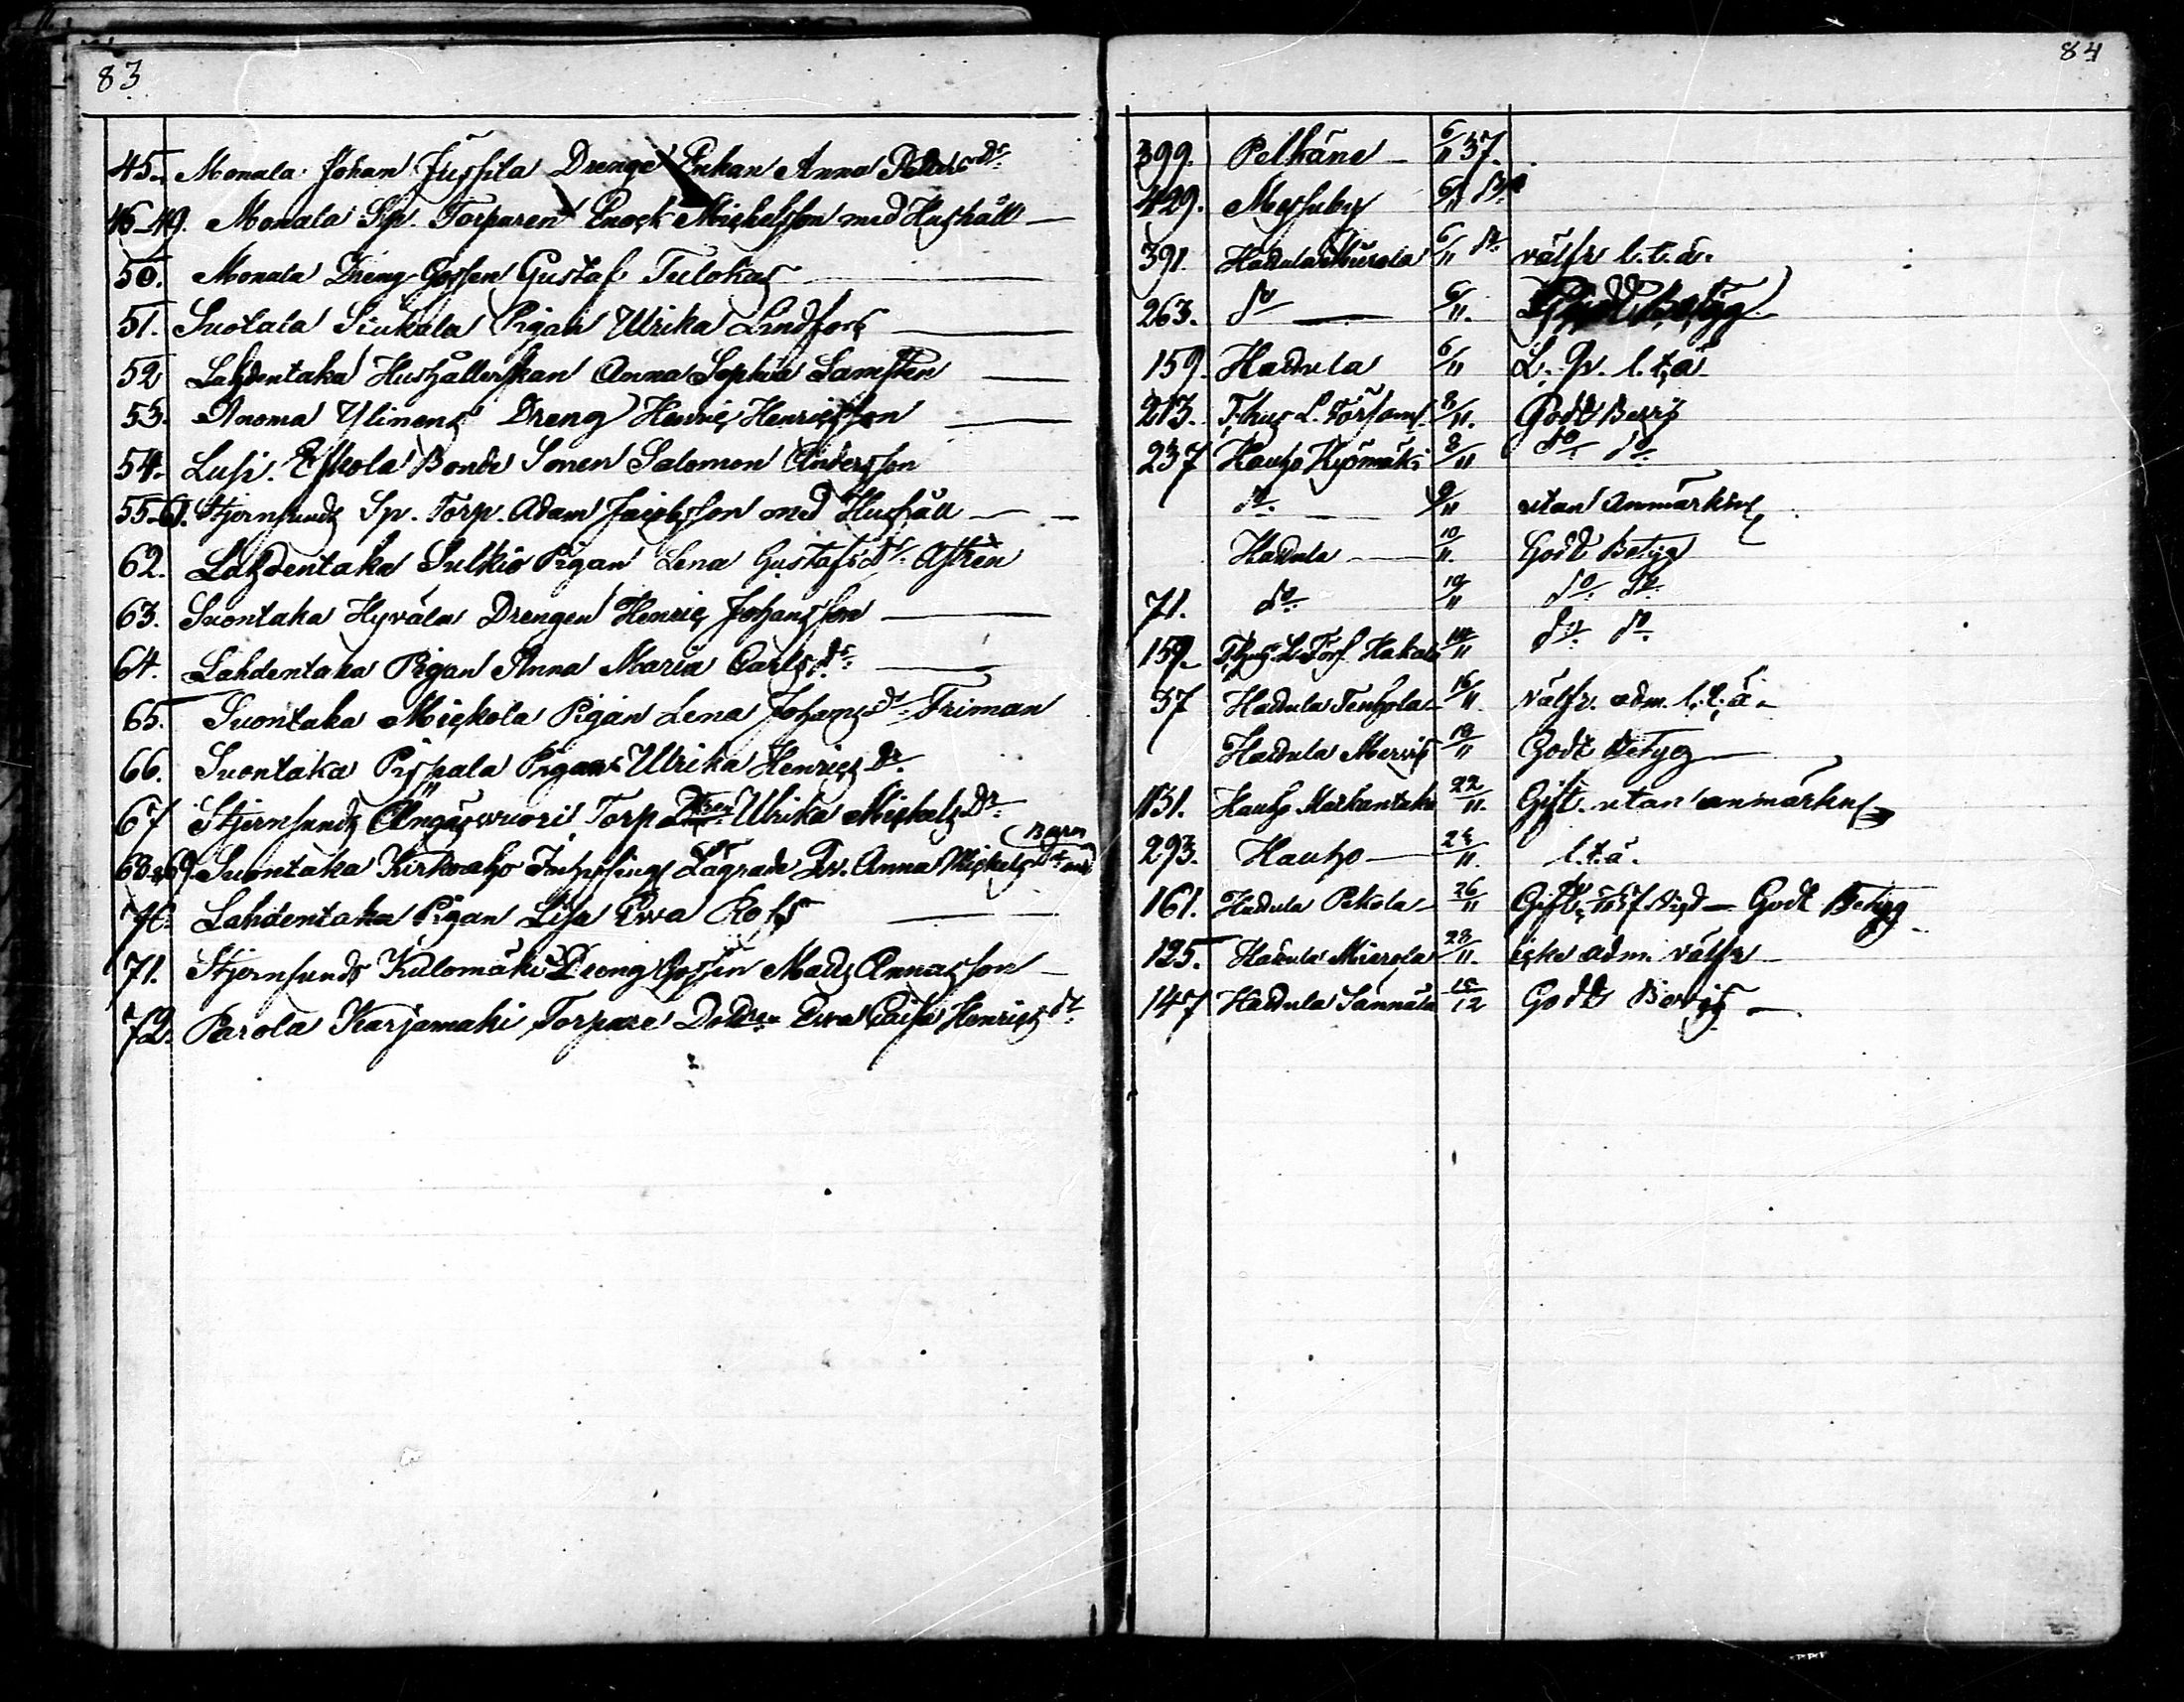 83
45. Monala Johan Jussila Drenge Enkan Anna Petersdr
46-49. Monala Sp. Torparen Enock Michelsson med Hushåll
50. Monala Dreng Gossen Gustaf Tulokas
51. Suotala Siukola Pigan Ulrika Lindfors
52 Lahdentaka Hushållerskan Anna Sophia
53. Anoma Ylinens Dreng Henric Henricsson
54. Lusi. Eskola Bonde Sonen Salomon Andersson
55-61. Stjernsunds Sp. Torp. Adam Jacobsson med Hushåll
62. Lahdentaka Sulkio Pigan Lena Gustafsdr
63. Suontaka Hyvälä Drengen Henric Johansson
64. Lahdentaka Pigan Anna Maria Carlsdr
65. Suontaka Mickola Pigan Lena Johansdr Friman
66. Suontaka Pispala Pigan Ulrika Henricsdr
67 Stjernsunds Torp Ulrika Mickelsdr
Barn
68 & 69 Suontaka Kirkoaho Inhysings Lägrade Qv. Anna Mickelsdr med
70. Lahdentaka Pigan Lisa Ewa Rofs
71. Stjernsunds Kulomäki Dreng Gossen Mads Annasson
72. Parola Karjamaki Torpare Dottren Ewa Caisa Henricsdr
84
399. Pelkäne 6/11 37.
429. Messuby 6/11 do
391. Hattula Mierola 6/11 do välfr l. t. ä.
263. do 6/11. Godt Betyg
159. Hattula 6/11 l. t. ä
213. T.hus L. Förs. 8/11. Godt Betyg
237 Hauho Kyömäki 8/11 do do
do 9/11 utan Anmärkn
Hattula 10/11. Godt Betyg
71. do 10/11 do do
159. T.hus L. Förs Hakala 14/11 do do
37 Hattula Tenhola 16/11. välfr. adm. l. t. ä.
Hattula Mervis 19/11 Godt Betyg
131. Hauho 22/11. Gift. utan anmärkn
293. Hauho 24/11. l. t. ä.
161. Hattula Pekola 26/11 Godt Betyg
125. Hattula Mierola 28/11. icke adm. välfr
147 Hattula Sannala 15/12 Godt